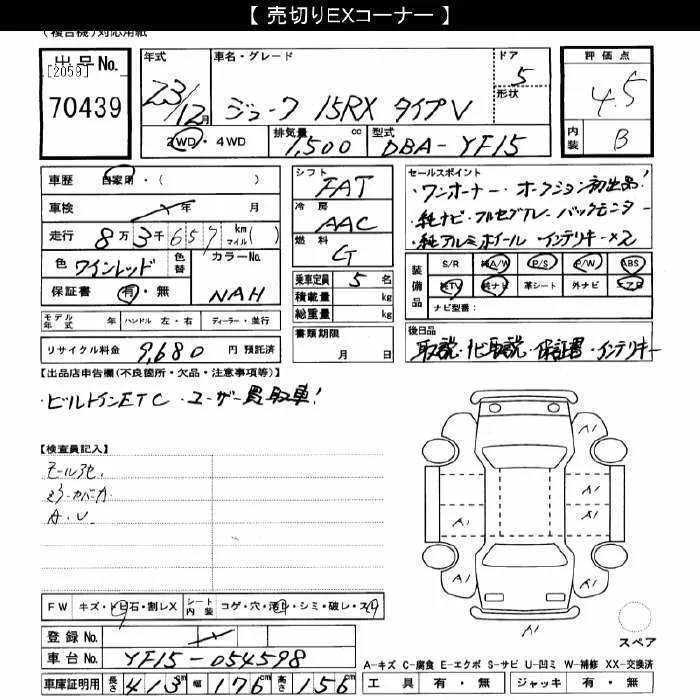 【 売切りEXコーナー 】
(複合機)対応用紙
出品No.
[2059]
70439
年式
23/12月
車名・グレード
ジューク 15RX タイプV
ドア
5
形状
評価点
4.5
内装
B
2WD・4WD
排気量
1,500 cc
型式
DBA-YF15
車歴 自家用・( )
車検 年 月
走行 8万3千657 km マイル( )
色 ワインレッド 色替
カラーNo.
NAH
保証書 有・無
モデル年式 年 ハンドル 左・右 ディーラー・並行
リサイクル料金 9,680 円 預託済
シフト
FAT
冷房
AAC
燃料
G
乗車定員 5 名
積載量 kg
総重量 kg
書類期限
月 日
セールスポイント
・ワンオーナー・オークション初出品!
・純ナビ・フルセグTV・バックモニター
・純アルミホイール インテリキー×2
装備品
S/R 純A/W P/S P/W ABS
純TV 純ナビ 革シート 外ナビ エアB
ナビ型番:
後日品
取説・ナビ取説・保証書・インテリキー
【出品店申告欄(不良箇所・欠品・注意事項等)】
・ビルトインETC ・ユーザー買取車!
【検査員記入】
A.U
FW キズ・トビ石・割レX シート内装 コゲ・穴・汚レ・シミ・破レ・スレ
登録No.
車台No. YF15-054598
車庫証明用 長さ 413 cm 幅 176 cm 高さ 156 cm
A1
A1
A1
A1
A1
A1
A1
A1
A1
スペア
A-キズ C-腐食 E-エクボ S-サビ U-凹ミ W-補修 XX-交換済
工具 有・無 ジャッキ 有・無